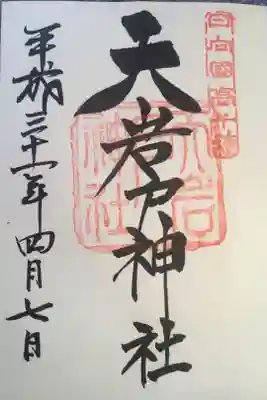 日向國高千穂
天岩戸神社
平成三十一年四月七日